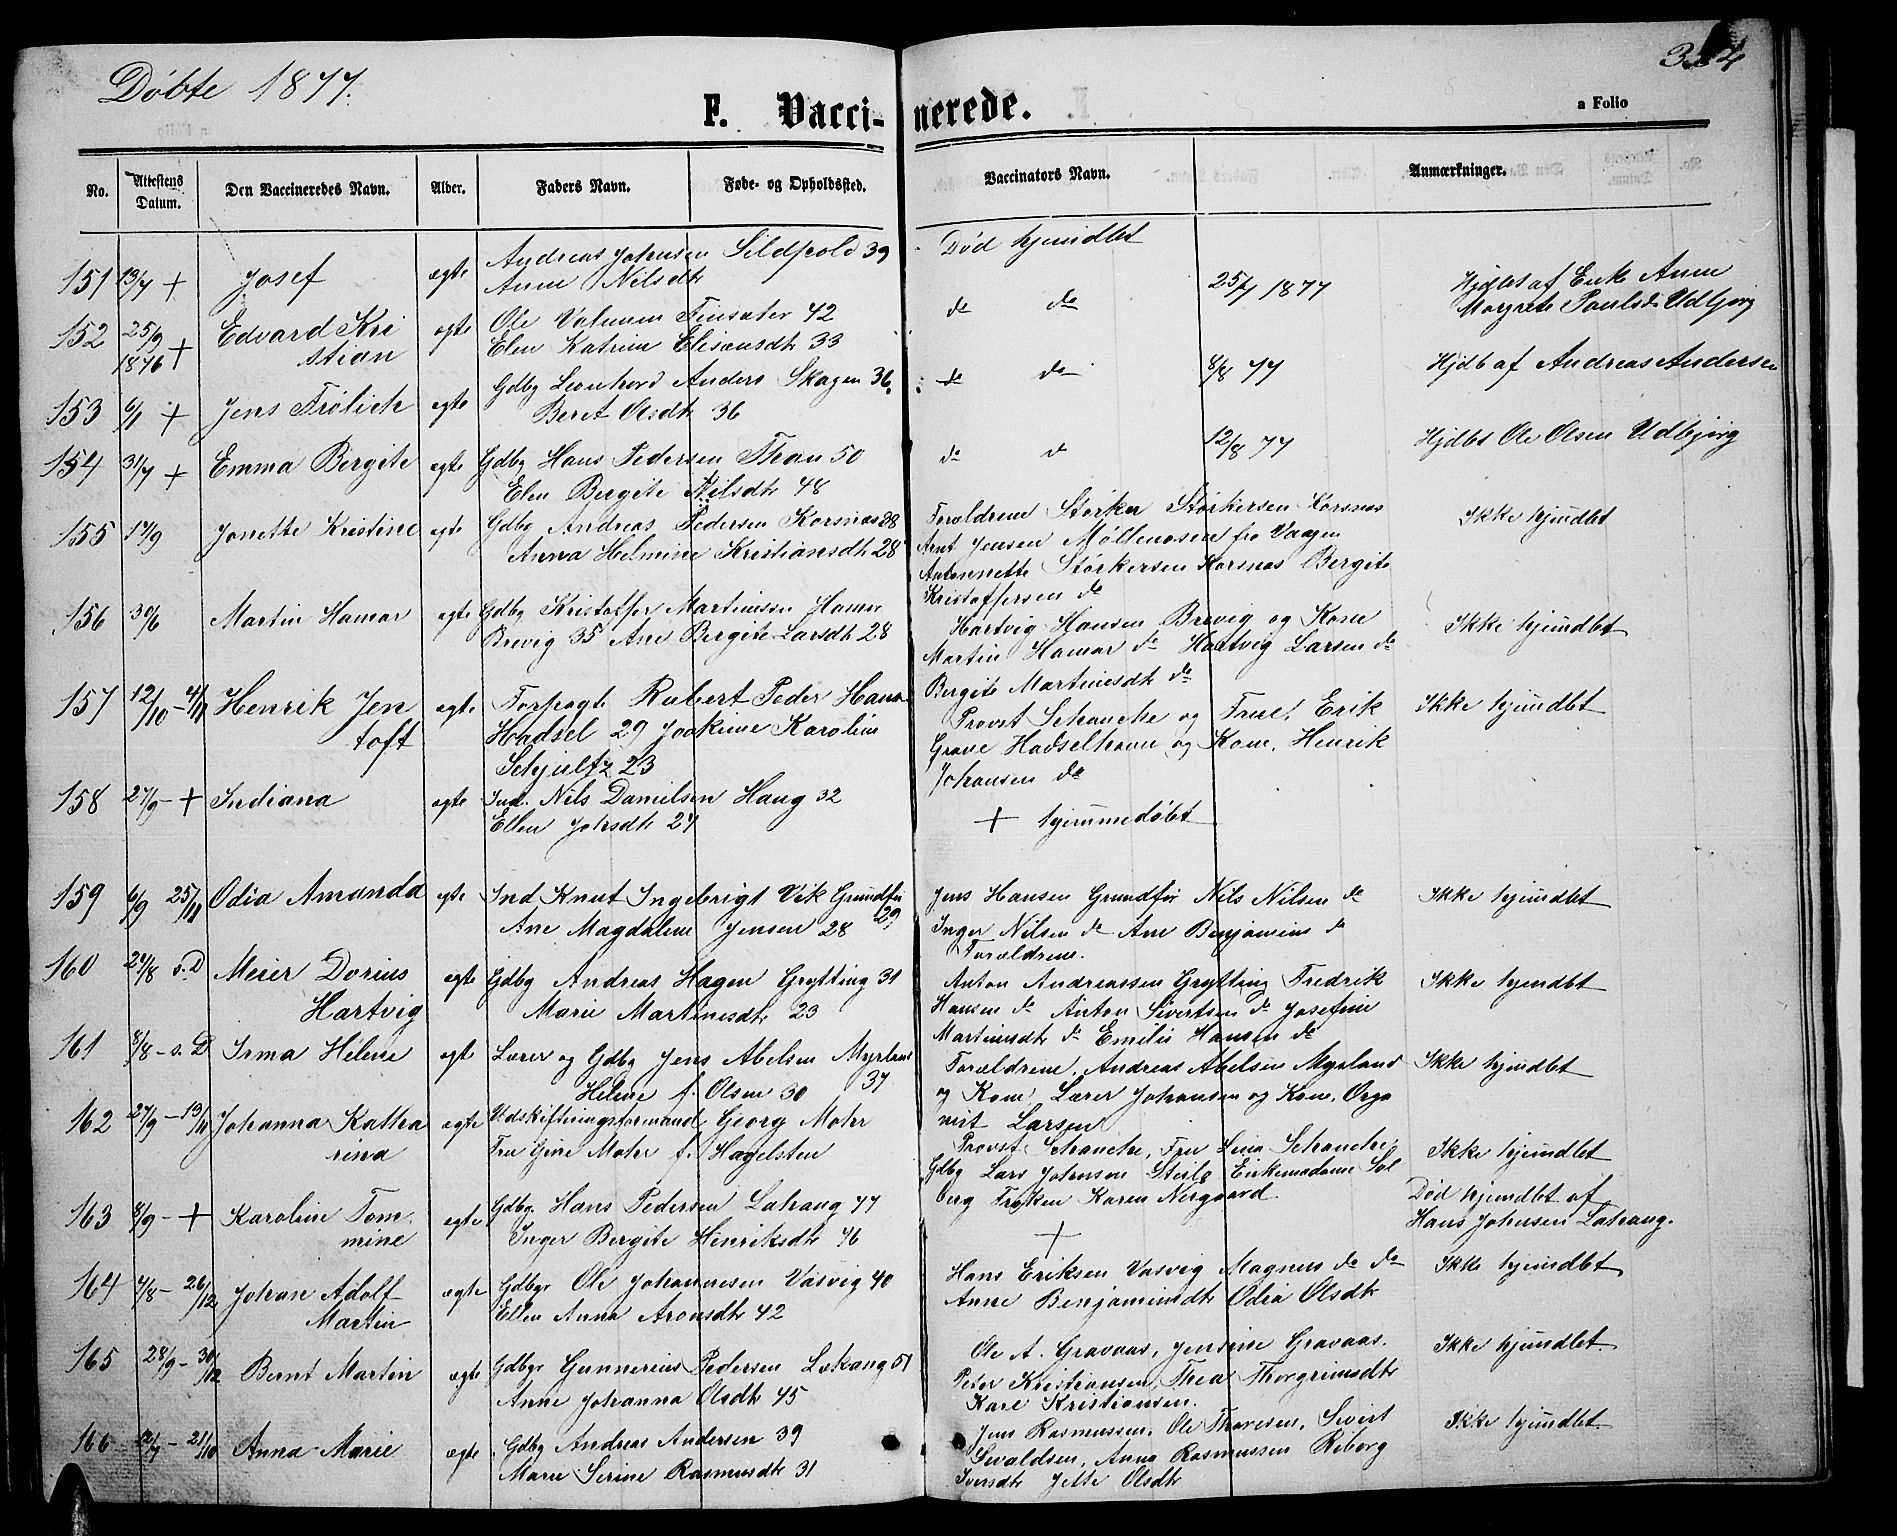 Døbte 1877.
334
F. Vaccinerede.
a Folio
No.
Attestens Datum.
Den Vaccineredes Navn.
Alder.
Faders Navn.
Føde- og Opholdssted.
Vaccinators Navn.
Anmærkninger.
151 13/7 + Josef ægte Andreas Johnsen Sildpold 39 Død hjemdbt 25/7 1877 Hjdbt af Enke Anne
Anne Nilsdtr Margrete Paulsdr Udbjerg
152 25/9 1876 + Edvard Kri ægte Ole Finsæter 42 do do
stian Elen Katrine Elisensdtr 33
153 6/1 + Jens Frölich ægte Gdbg Leonhard Anders Skagen 36 do do 8/8 77 Hjdb af Andreas Andersen
Beret Olsdtr 36
154 31/7 + Emma Bergite ægte Gdbg Hans Pedersen Than 50 do do 12/8 77 Hjdbt Ole Olsen Udbjerg
Elen Bergite Nilsdtr 48
155 17/9 Jonette Kristine ægte Gdbg Andreas Pedersen Korsnæs 28 Forældrene Störker Störkersen Korsnæs Ikke hjemdbt
Anna Helmine Kristiansdtr 28 Arnt Jensen Möllenosen fra Vaagen
Antonnette Störkersen Korsnæs Bergite
Kristoffersen do
156 30/6 Martin Hamar ægte Gdbg Kristoffer Martinussen Hamar Hartvig Hansen Brevig og Kone Ikke hjemdbt
Brevig 35 Ane Bergite Larsdtr 28 Martin Hamar do Hartvig Larsen do
Bergite Martinesdtr do
157 12/10 - 4/11 Henrik Jen ægte Forpagt Robert Peder Hans Provst Schanche og Frue, Erik Ikke hjemdbt
toft Hadsel 29 Joakime Karoline Grave Hadselhavn og Kone, Henrik
Schjultz 23 Johansen do
158 27/9 - + Indiana ægte Ind. Nils Danielsen Haug 32 + hjemmedøbt
Ellen Johsdtr 27
159 6/9 25/11 Odia Amanda ægte Ind Knut Ingebrigt Vik Grundfør 29 Jens Hansen Grundför Nils Nilsen do Ikke hjemdbt
Ane Magdalene Jensen 28 Inger Nilsen do Ane Benjamins do
Forældrene.
160 24/8 s.D Meier Dorius ægte Gdbg Andreas Hagen Grytting 31 Anton Andreassen Grytting Fredrik Ikke hjemdbt
Hartvig Marie Martinesdtr 23 Hansen do Anton Sivertsen do Josefine
Martinusdtr do Emilie Hansen do
161 8/8 - s.D Irma Helene ægte Lærer og Gdbg Jens Abelsen Myrland 37 Forældrene, Andreas Abelsen Myrland Ikke hjemdbt
Helene f. Olsen 30 og Kone, Lærer Johansen og Kone, Orga
nist Larsen
162 27/9 - 13/11 Johanna Katha ægte Udskiftningsformand Georg Mohr Provst Schanche, Fru Lina Schanche, Ikke hjemdbt
rina Fru Gine Mohr f. Hagelsten Gdbg Lars Johnson Steile Enkemadame Sol
berg Frøken Karen Nergaard.
163 8/9 - + Karoline Tom ægte Gdbg. Hans Pedersen Lahaug 47 + Død hjemdbt af
mine Inger Bergite Henriksdtr 46 Hans Johnsen Lahaug.
164 7/8 - 26/12 Johan Adolf ægte Gdbgr Ole Johannesen Vasvig 40 Hans Eriksen Vasvig Magnus do do Ikke hjemdbt
Martin Ellen Anna Aronsdtr 42 Anne Benjaminsdtr Odia Olsdtr
165 28/9 - 30/12 Bernt Martin ægte Gdbgr Gunnerius Pedersen Lekang 51 Ole A. Gravaas, Jensine Gravaas. Ikke hjemdbt
Anne Johanna Olsdtr 45 Peter Kristiansen, Thea Thorgrimsdtr
Karl Kristiansen.
166 12/7 - 21/10 Anna Marie ægte Gdbg Andreas Andersen 39 Jens Rasmussen, Ole Thoresen, Sivert Ikke hjemdbt
Marie Serine Rasmusdtr 31 Sivaldsen, Anna Rasmussen Riborg
Iversdtr Jette Olsdtr